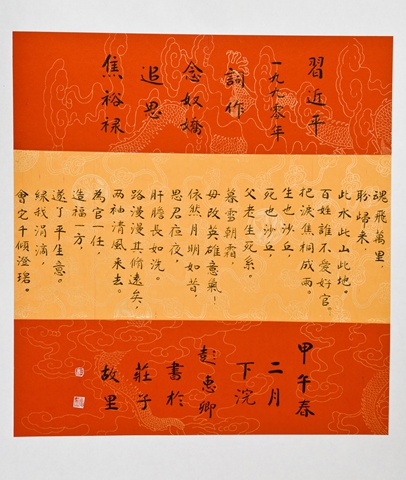 習近平
一九九零年
詞作
念奴嬌
追思
焦裕禄
魂飛萬里
盼歸来
此水此山此地。
百姓誰不愛好官。
把淚焦桐成雨。
生也沙丘，
死也沙丘，
父老生死系。
暮雪朝霜，
毋改英雄意氣！
依然月明如昔，
思君夜夜，
肝膽長如洗。
路漫漫其修遠矣，
两袖清風来去。
為官一任，
造福一方，
遂了平生意。
緑我涓滴，
會它千傾澄碧。
甲午春
二月
下浣
彭惠卿
書於
莊子
故里